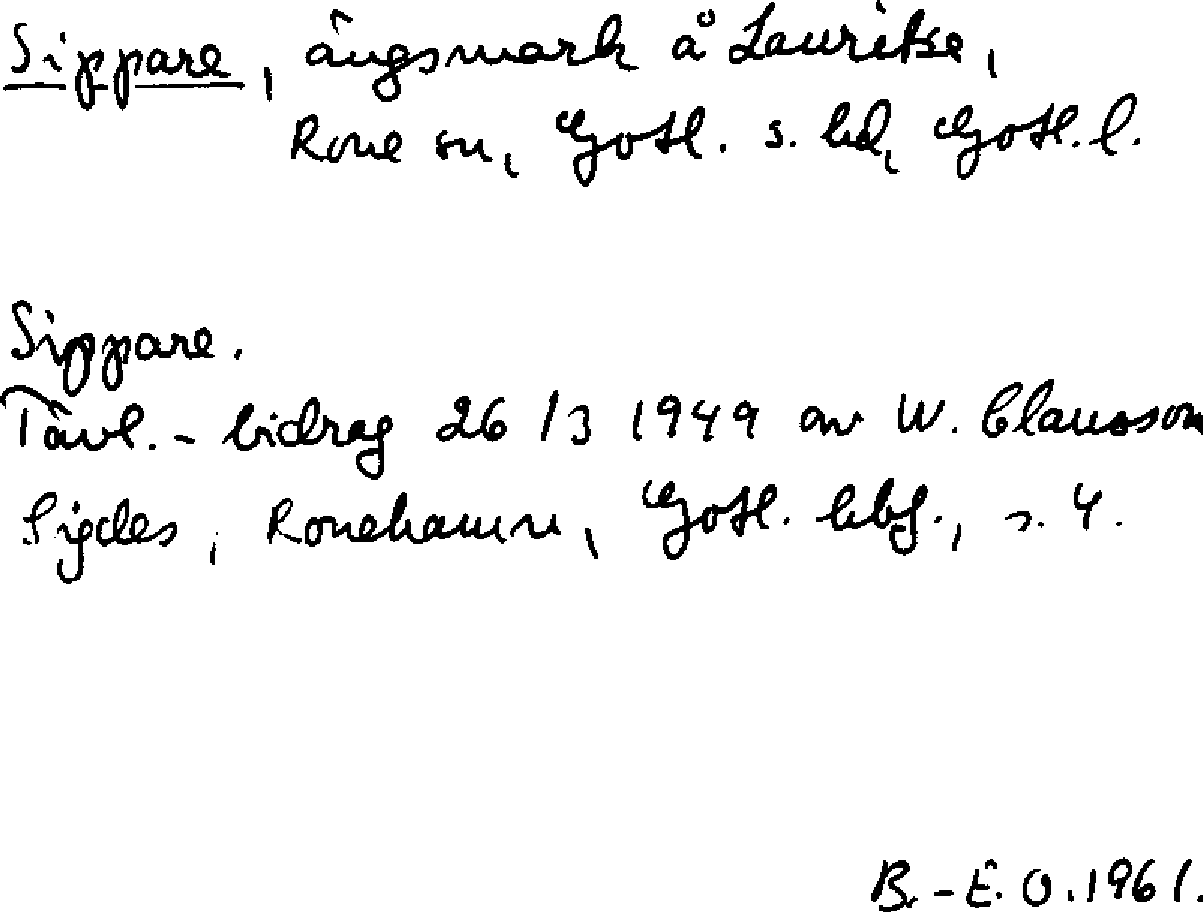 Sippare, ängsmark å Lauritse,
Rone sn, Gotl. s. hd, Gotl. l.
Sippare.
Tävl.-bidrag 26/3 1949 av W. Clauson
Sigdes, Ronehamn, Gotl. hbf., s. 4.
B.-E. O. 1961.